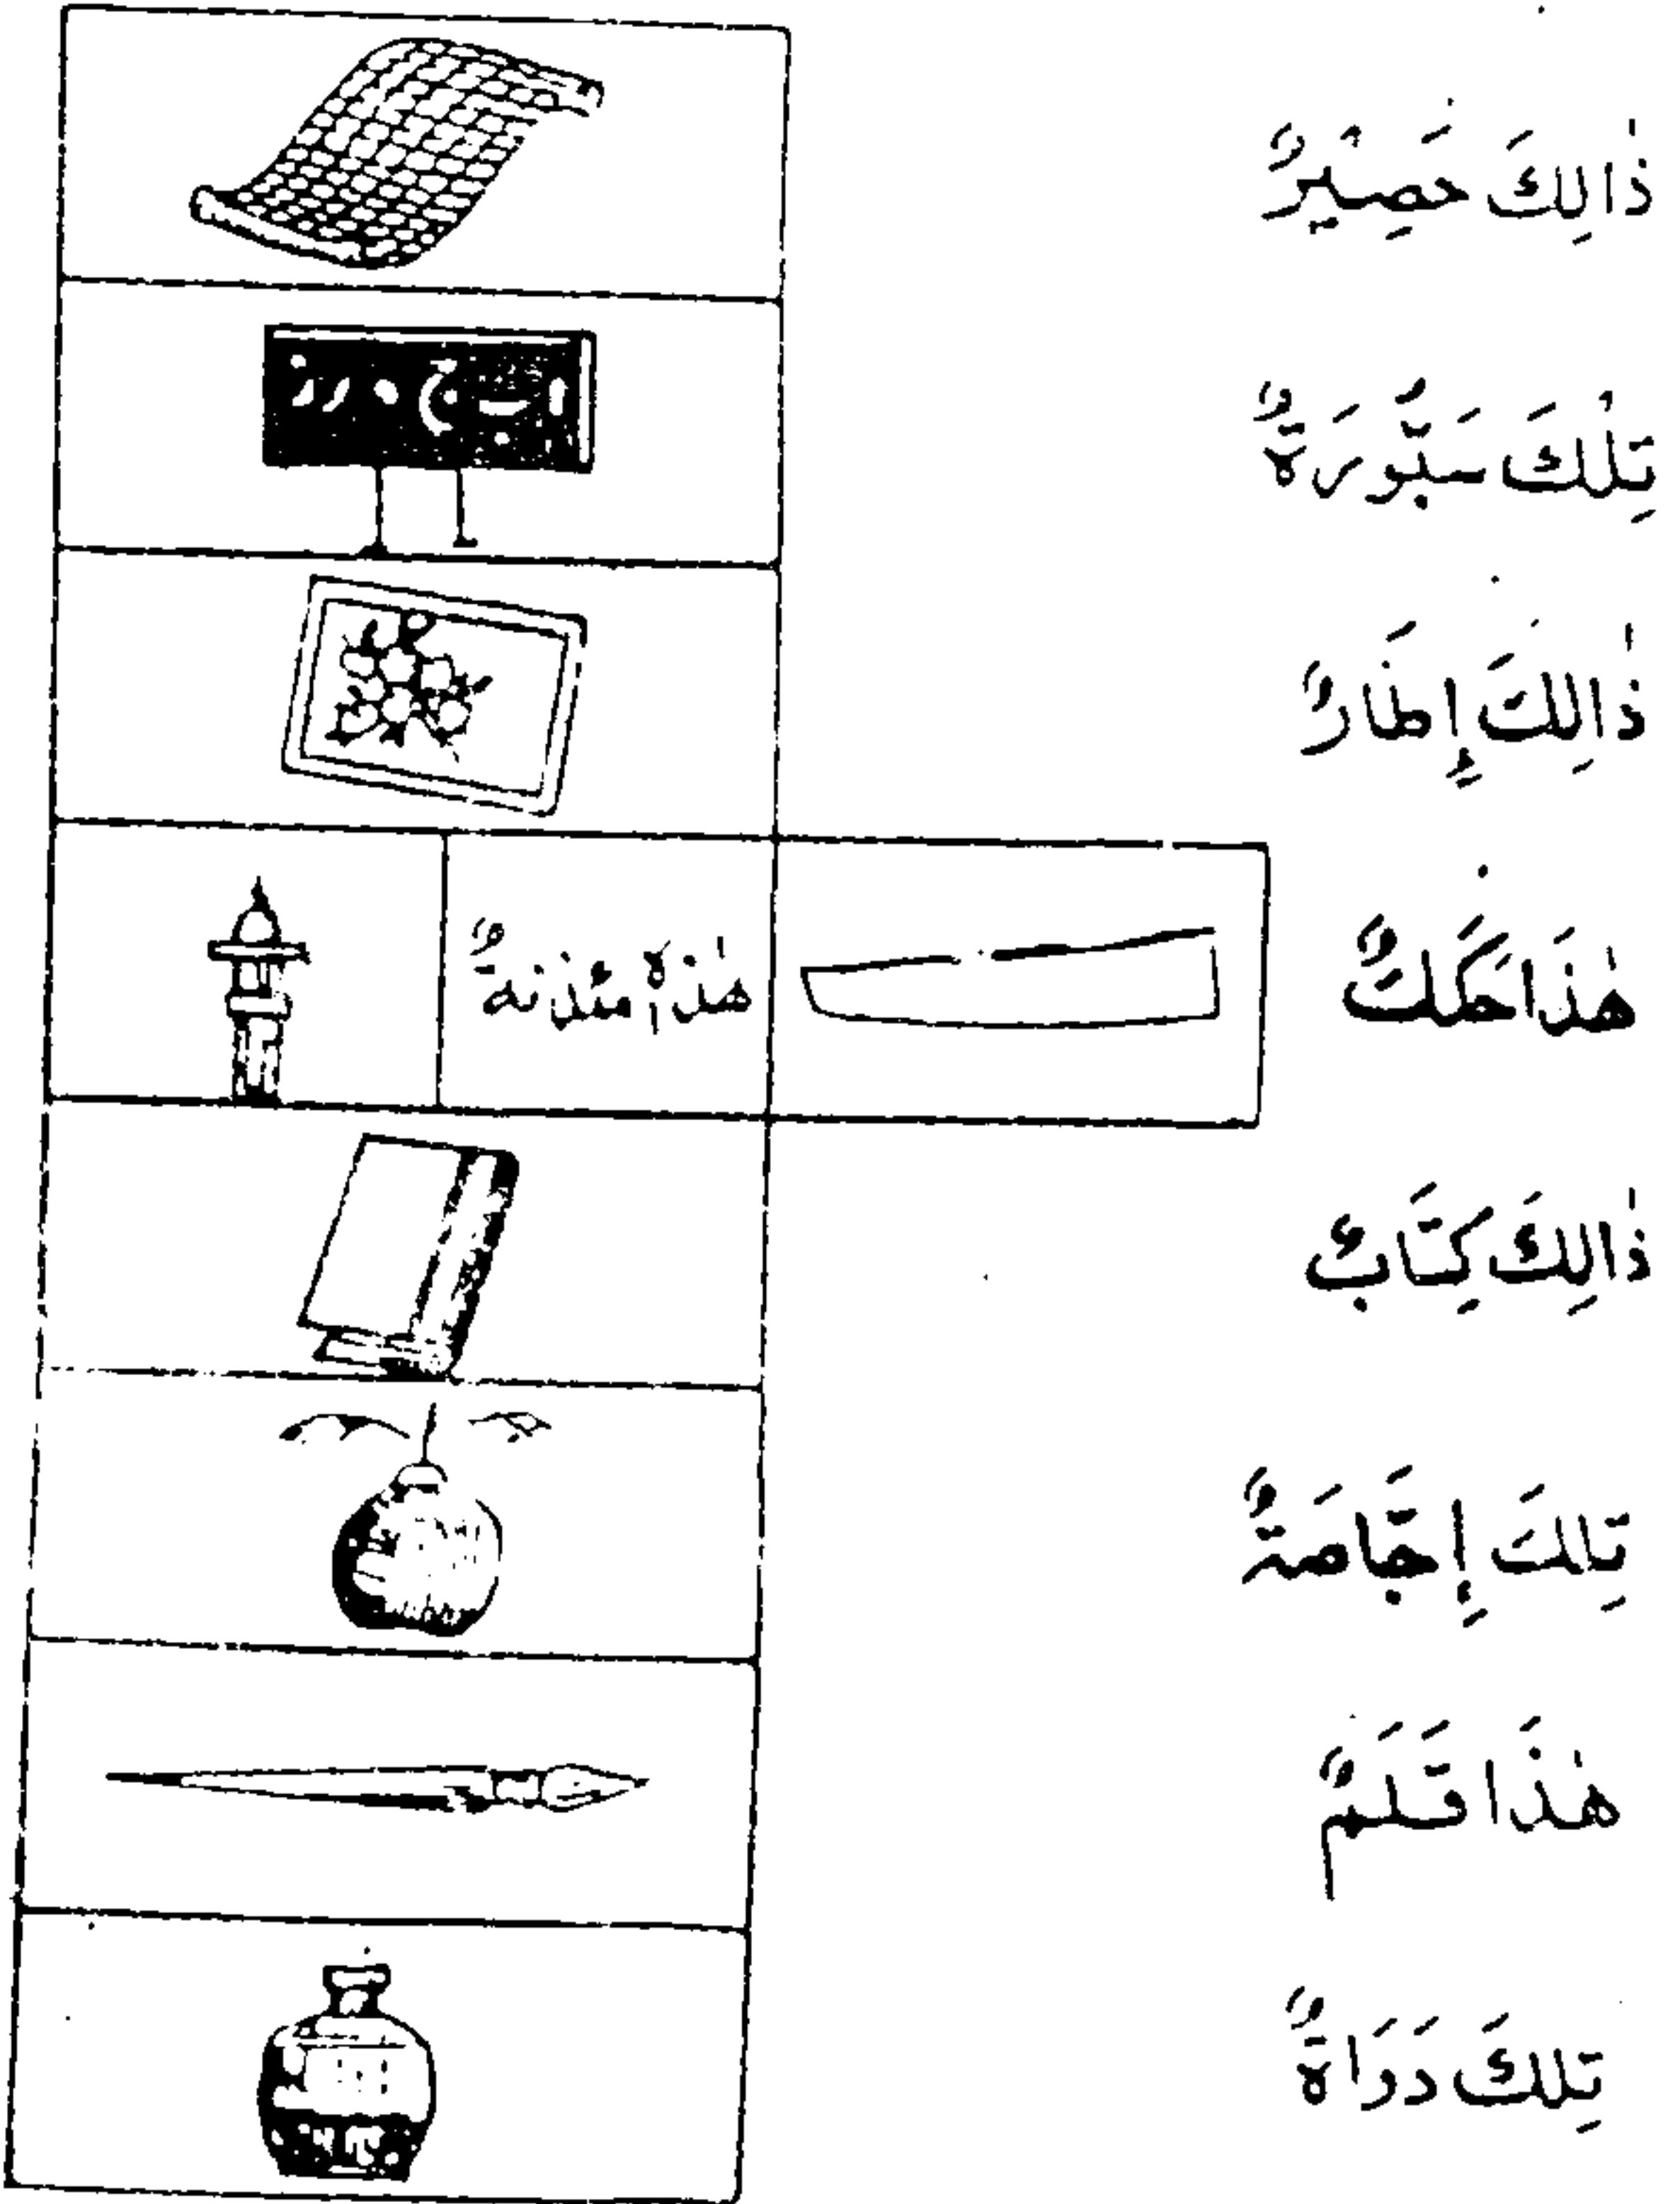 ذٰالِكَ حَصِيْرٌ
تِلْكَ سَبُّوْرَةٌ
ذٰالِكَ إِطَارٌ
هٰذَا
هٰذهٖ مئذنةٌ
ذٰالِكَ كِتَابٌ
تِلكَ إِجَّاصَةٌ
هٰذَا قَلَمٌ
تِلكَ دَوَاةٌ